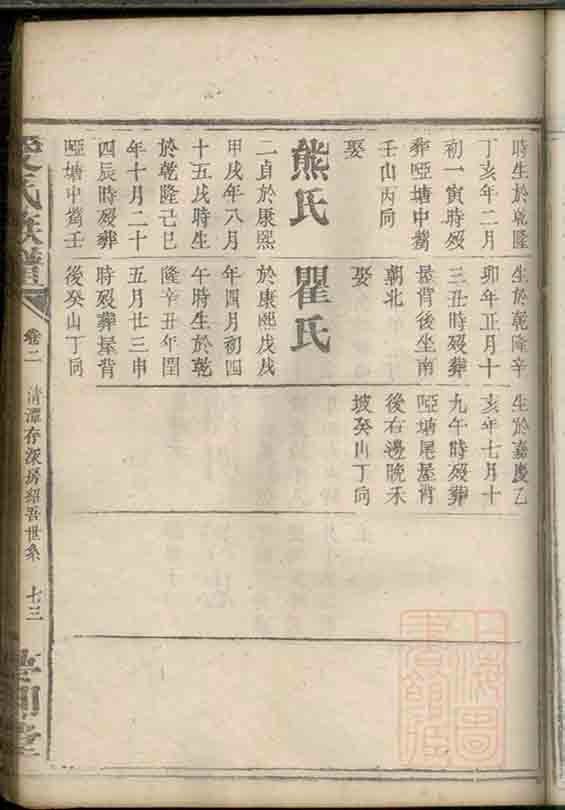 時生於乾隆
丁亥年二月
初一寅時歿
葬啞塘中嶌
壬山丙向
娶
熊氏
二貞於康熙
甲戌年八月
十五戌時生
於乾隆己巳
年十月二十
四辰時歿葬
啞塘中嶌壬
生於乾隆辛
卯年正月十
三丑時歿葬
屋背後坐南
朝北
娶
瞿氏
於康熙戊戌
年四月初四
午時生於乾
隆辛丑年閏
五月廿三申
時歿葬屋背
後癸山丁向
生於嘉慶乙
亥年七月十
九午時歿葬
啞塘尾屋背
後右邊晚禾
坡癸山丁向
氏族譜
卷二
清潭存深房紹吾世系
七三
上海圖
書館藏